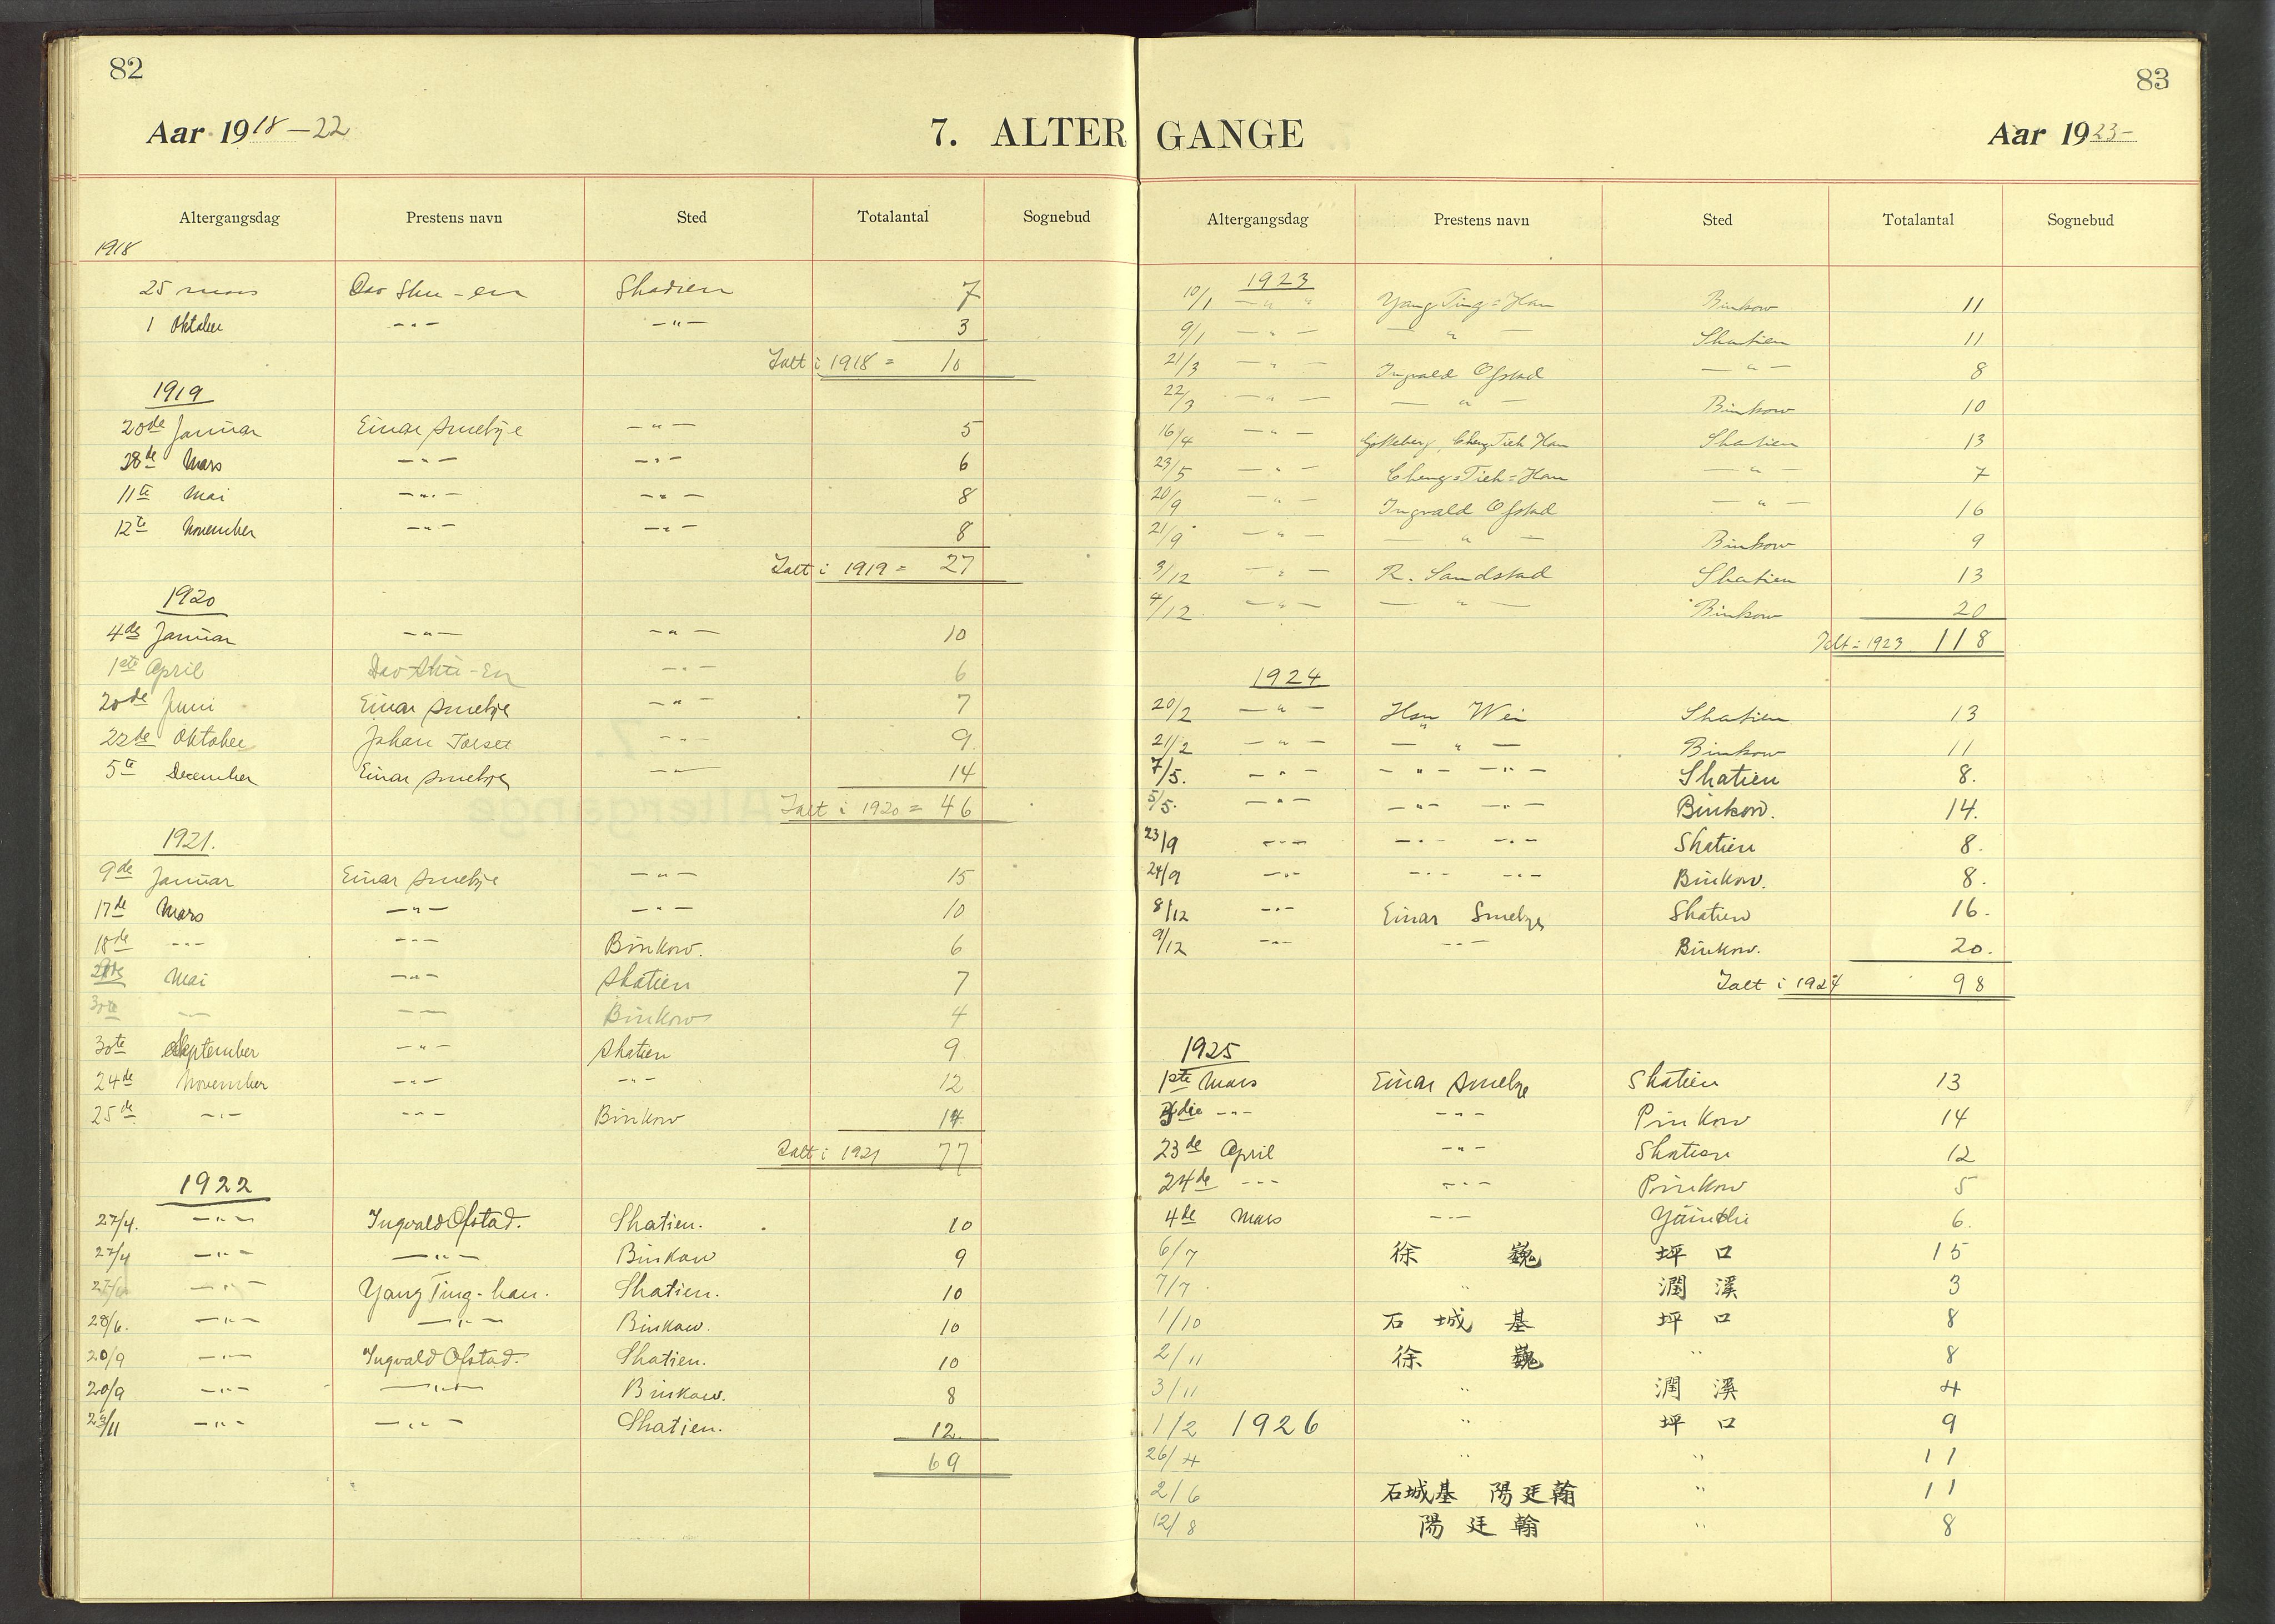 82
Aar 1918-22
7. ALTER
Altergangsdag Prestens navn Sted Totalantal Sognebud
1918
25 mars Dao Shu-en Shatien 7
1 Oktober -"- -"- 3
Ialt i 1918 = 10
1919
20de Januar Einar Smebye -"- 5
28de Mars -"- -"- 6
11te Mai -"- -"- 8
12te November -"- -"- 8
Ialt i 1919 = 27
1920
4de Januar -"- -"- 10
1ste April Dao Shu-En -"- 6
20de Juni Einar Smebye -"- 7
22de Oktober Johan Tørset -"- 9
5te December Einar Smebye -"- 14
Ialt i 1920 = 46
1921.
9de Januar Einar Smebye -"- 15
17de Mars -"- -"- 10
18de -"- -"- Binkow. 6
Mai -"- Shatien 7
30te -"- -"- Binkow 4
30te September -"- Shatien 9
24de November -"- -"- 12
25de -"- -"- Binkow 14
Ialt i 1921 77
1922
27/4. -"- Ingvald Ofstad. Shatien. 10
27/4 -"- -"- Binkow 9
-"- Yang Ting-han. Shatien. 10
28/6. -"- -"- Binkow. 10
20/9 -"- Ingvald Ofstad. Shatien. 10
20/9 -"- -"- Binkow. 8
23/11 -"- -"- Shatien. 12
69
83
GANGE
Aar 1923-
Altergangsdag Prestens navn Sted Totalantal Sognebud
1923
10/1 -"- Yang Ting=Han Binkow 11
9/1 -"- -"- Shatien 11
21/3 -"- Ingvald Ofstad -"- 8
22/3 -"- -"- Binkow 10
16/4 -"- Gotteberg, Cheng Tieh Han Shatien 13
23/5 -"- Cheng=Tieh=Han -"- 7
20/9 -"- Ingvald Ofstad -"- 16
21/9 -"- -"- Binkow 9
3/12 -"- R. Sandstad Shatien 13
4/12 -"- -"- Binkow 20
Ialt i 1923 118
1924
20/2 -"- Hsü Wei Shatien 13
21/2 -"- -"- Binkow 11
7/5. -"- -"- -"- Shatien 8.
5/5. -"- -"- -"- Binkow. 14.
23/9 -"- -"- -"- Shatien 8.
24/9 -"- -"- -"- Binkow. 8.
8/12 -"- Einar Smebye Shatien 16.
9/12 -"- -"- Binkow. 20.
Ialt i 1924 98
1925
1ste Mars Einar Smebye Shatien 13
-"- -"- Pinkow 14
23de April -"- Shatien 12
24de -"- -"- Pinkow 5
4de Mars -"- 6.
6/7 徐 巍 坪 口 15
7/7 " 潤 溪 3
1/10 石 城 基 坪 口 8
2/11 徐 巍 " 8
3/11 " 潤 溪 4
1/2 1926 " 坪 口 9
26/4 " " 11
2/6 石城基 陽廷翰 " 11
12/8 陽 廷 翰 " 8